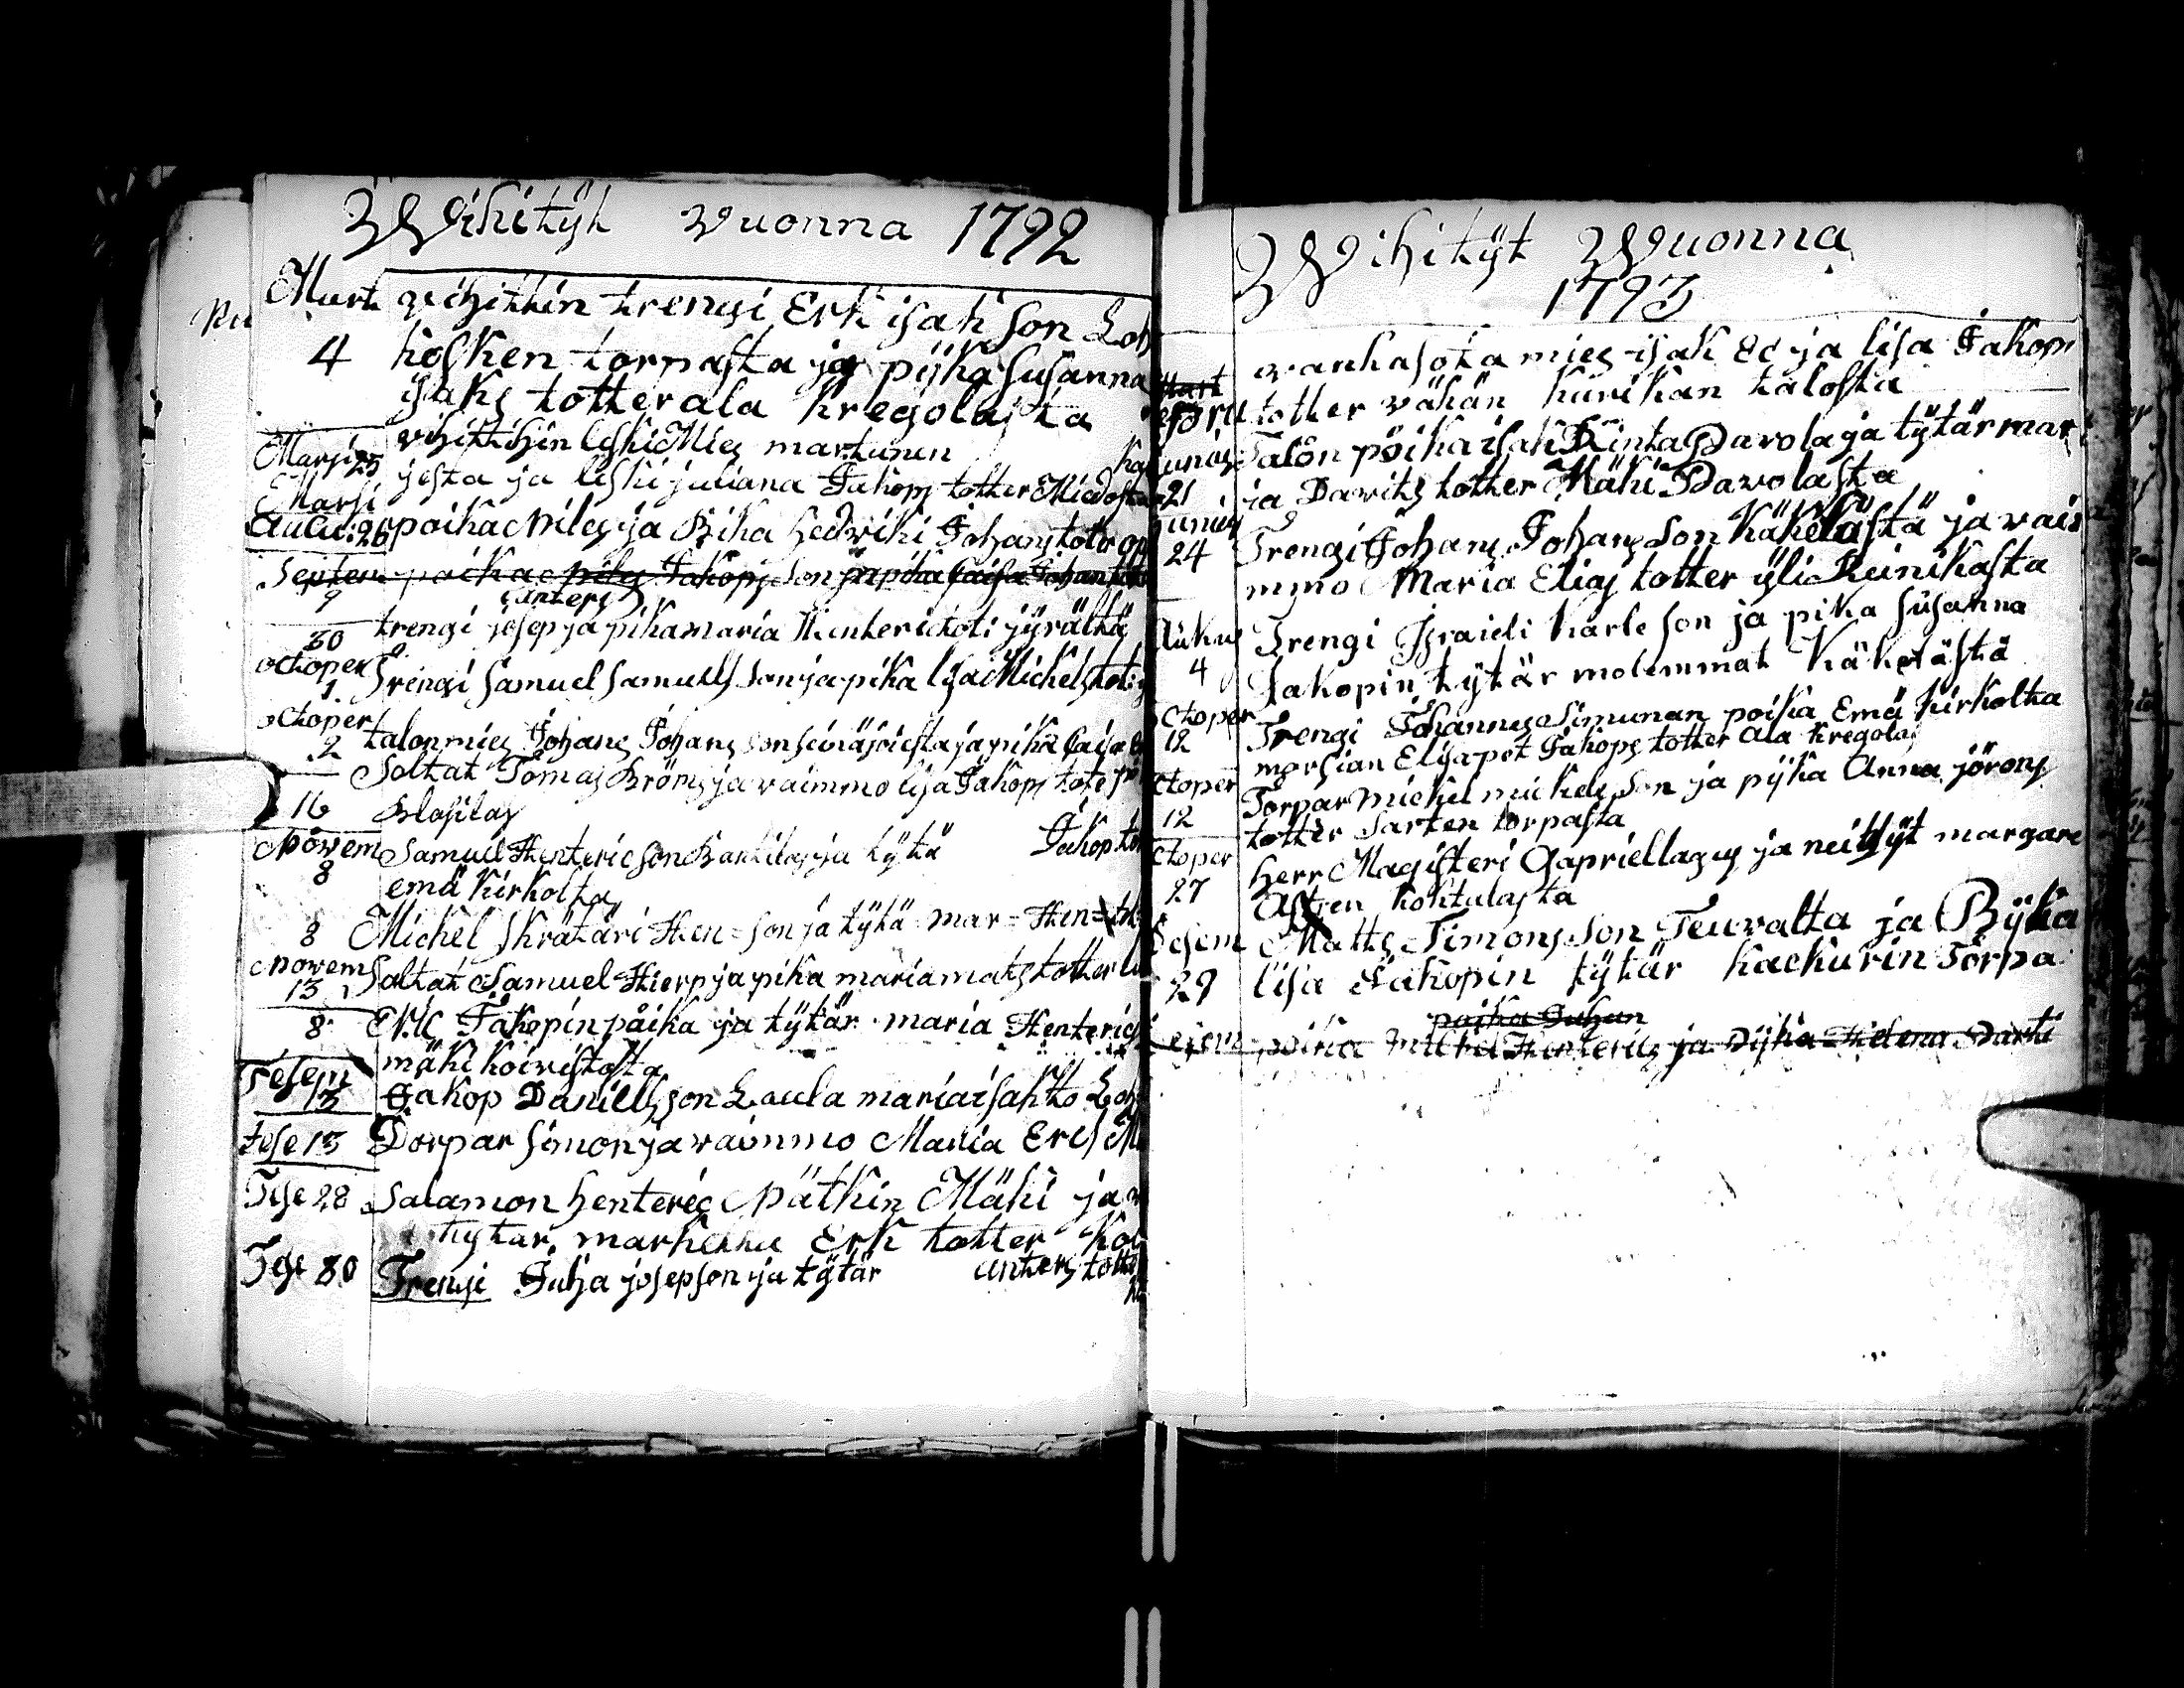 Wihityt wuonna 1792
Mart wihittin trengi Erk isak son Loh
4 kosken torpasta ja pijka susanna
isaks totter ala kregolasta
wihittihin leski Mies martunen
Marsi 25 jesta ja leski juliana Jakops totter Miedosta
Marsi
Auku: 26 poika Niles ja Bika hedwiki Johans toter
Septem poika Jakops son ja pika Caisa Johan
9 anters
trengi josep ja pika maria Henteric toti jyrältä
30
octoper Trengi Samuel Samuels son ja pika lisa Michels tot:
1
octoper talon mies Johans Johans son seinäjoiesta ja pika Caisa
2
Soltat Tomas Bröms ja waimmo lisa Jakops tote
16 Blasilas
Nowem Samuel Henteric son Bankilas ja tytä Jakop tot
8 emä kirkolta
8 Michel skrätäri Hen= son ja tytä mar= Hen=
Nowem Saltat Samuel Hierp ja pika maria mats totter
13
8 N:C Jakopin påika ja tytär maria Henterics
mäki koiwistosta
Tesem
13 Jakop Daniells son Laula maria isak to Loh
tese 13 Dorpar simon ja waimmo Maria Ercs
Tese 28 Salamon henteric Nätkin Mäki ja
tytar marketta Erk totter
Tese 30 Trengi Juha josepson ja tytär anters tott
Wihityt Wuonna
1793
wanha sota mies isak Ec ja lisa Jakop
Mart
totter wähän kurikan talosta
Junius Talon poika isak Rinta Pawola ja tytär mar
21 ia Dawits totter Mäki Pawolasta
Junius
24 Trengi Johans Johans son käkelästä ja wai
mmo Maria Elias totter yli Reinikasta
Aukus Trengi Israieli karle son ja pika susanna
4 Jakopin tytär molemmat käkelästä
octoper Trengi Johannes Simunan poika Emä kirkolta
12 morsian Elisapet Jakops totter ala kregolas
octoper Torpar michel mickels son ja pijka Anna jörons
12 totter sarten torpasta
octoper herr Magisteri Gapriel lagus ja neitsyt margare
27 Astren kohtulasta
Desem Matts Timons son Teuwalta ja Pyka
29 lisa Jakopin tytär kackurin Torpa
poika Juhan
poika Michel Henterics ja Pijka Helena Marti